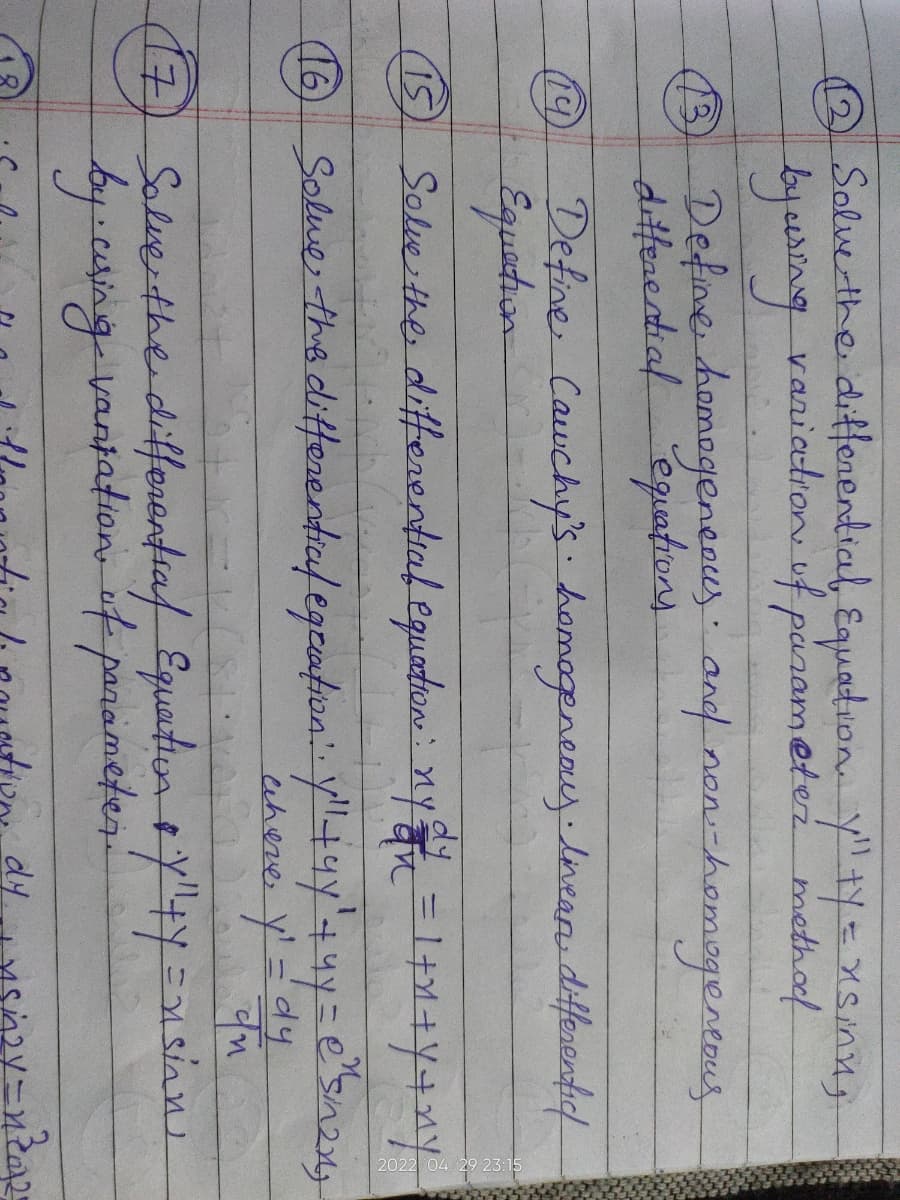 12 Solve the differential Equation y'' + y = x sin x,
by using variation of parameter method
13 Define homogeneous and non-homogeneous
differential equations
14 Define Cauchy's homogeneous linear differential
Equation
15 Solve the differential equation: xy dy/dx = 1+x+y+xy
16 Solve the differential equation: y'' + 4y' + 4y = e^x sin 2x,
where y' = dy/dx
17 Solve the differential Equation y'' + y = x sin x
by using variation of parameter.
18 Solve the differential equation: dy + x sin2y = x³
2022 04 29 23:15